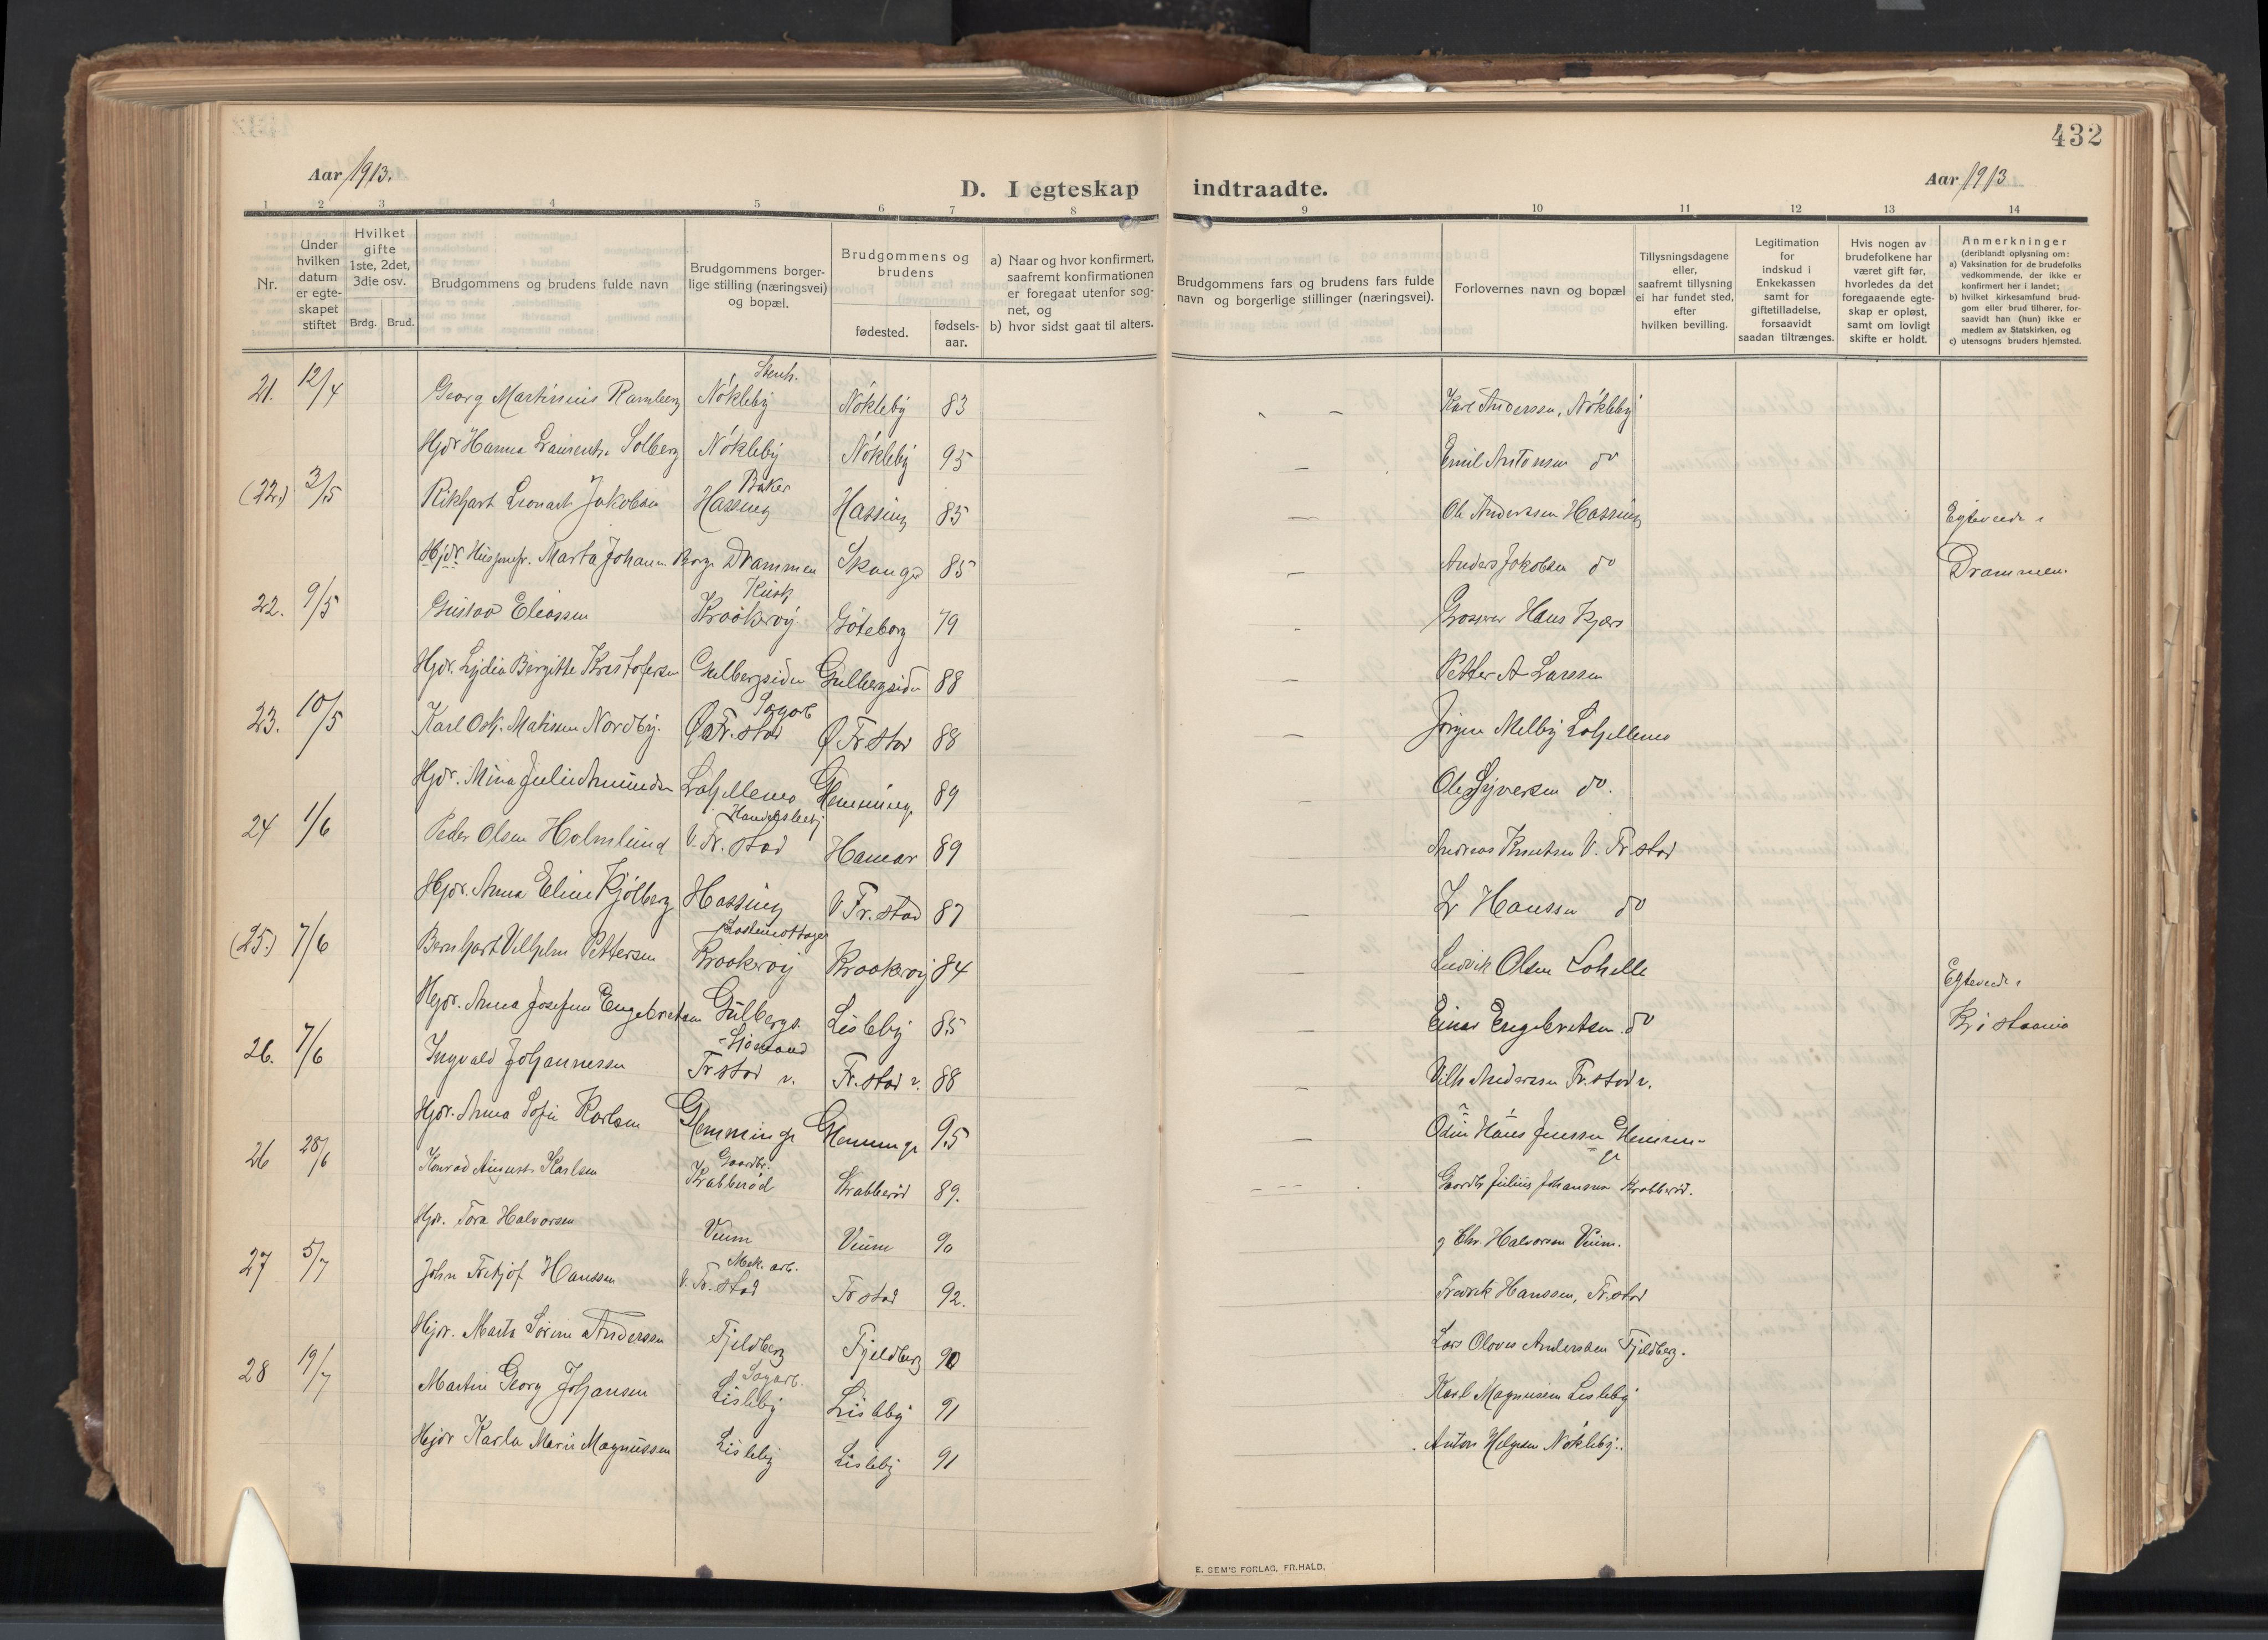 432
Aar 1913.
D. I egteskap indtraadte.
Aar 1913
1 2 3 4 5 6 7 8 9 10 11 12 13 14
Nr.
Under hvilken datum er egteskapet stiftet
Hvilket gifte 1ste, 2det, 3die osv.
Brdg. Brud.
Brudgommens og brudens fulde navn
Brudgommens borgerlige stilling (næringsvei) og bopæl.
Brudgommens og brudens
fødested.
fødselsaar.
a) Naar og hvor konfirmert, saafremt konfirmationen er foregaat utenfor sognet, og
b) hvor sidst gaat til alters.
Brudgommens fars og brudens fars fulde navn og borgerlige stillinger (næringsvei).
Forlovernes navn og bopæl
Tillysningsdagene eller, saafremt tillysning ei har fundet sted, efter hvilken bevilling.
Legitimation for indskud i Enkekassen samt for giftetilladelse, forsaavidt saadan tiltrænges.
Hvis nogen av brudefolkene har været gift før, hvorledes da det foregaaende egteskap er opløst, samt om lovligt skifte er holdt.
Anmerkninger (deriblandt oplysning om:
a) Vaksination for de brudefolks vedkommende, der ikke er konfirmert her i landet;
b) hvilket kirkesamfund brudgom eller brud tilhører, forsaavidt han (hun) ikke er medlem av Statskirken, og
c) utensogns bruders hjemsted.
21. 12/4 Georg Martinius Ramberg Stenh. Nökleby Nökleby 83 Karl Anderssen, Nökleby
Hjdr Hanna Laurentse Solberg Nökleby Nökleby 95 Emil Antonsen do
(22.) 3/5 Rikhart Leonart Jakobsen Baker Hassing Hassing 85 Ole Anderssen Hassing Egteviede i
Hjdr. Marta Johann. Borge Drammen Skauger 85 Anders Jakobsen do Drammen.
22. 9/5 Gustav Eliassen Kusk Kraakeröy Göteborg 79 Hans Kjær
Hjdr. Lydia Birgitte Kristofersen Gulbergsiden Gulbergsiden 88 Petter A Larssen
23. 10/5 Karl Osk. Matisen Nordby. Sagarb Ø Fr.stad Ø Fr stad 88 Jörgen Melby Lahellemo
Hjdr. Mina Julie Amundsen Lahellemo Glemminge 89 Ole Syversen do.
24 1/6 Peder Olsen Holmlund Handelsbetj V. Fr. stad Hamar 89 Andreas Knutsen V. Fr stad
Hjdr. Anna Eline Kjölberg Hassing V Fr. stad 87 L Hanssen do
(25.) 7/6 Bernhart Vilhelm Pettersen Lastemottager Kraakeröy Kraakeröy 84 Ludvik Olsen Lahelle Egteviede i
Hjdr. Anna Josefine Engebretsen Gulbergs. Lisleby 85 Einar Engebretsen do Kristiania
26. 7/6 Ingvald Johannessen Sjömand Fr stad v. Fr. stad v. 88 Vilh Anderssen Fr. stad v.
Hjdr. Anna Sofie Karlsen Glemminge Glemminge 95 Odin Hans Jenssen Glemminge
26 28/6 Konrad August Karlsen Gaardbr. Krabberöd Krabberöd 89. Gaardb Julius Johansen Krabberöd.
Hjdr. Tora Halvorsen Veum Veum 90 Chr. Halvorsen Veum.
27 5/7 John Fritjof Hanssen Mek. arb. V. Fr. stad Fr stad 92. Fredrik Hanssen, Fr.stad
Hjdr. Marta Sörine Anderssen Fjeldberg Fjeldberg 90 Lars Olaves Anderssen Fjeldberg.
28 19/7 Martin Georg Johansen Sagarb. Lisleby Lisleby 91 Karl Magnusen Lisleby
Hjdr Karla Marie Magnussen Lisleby Lisleby 91 Anton Helgesen Nökleby.
E. SEM'S FORLAG, FR.HALD.